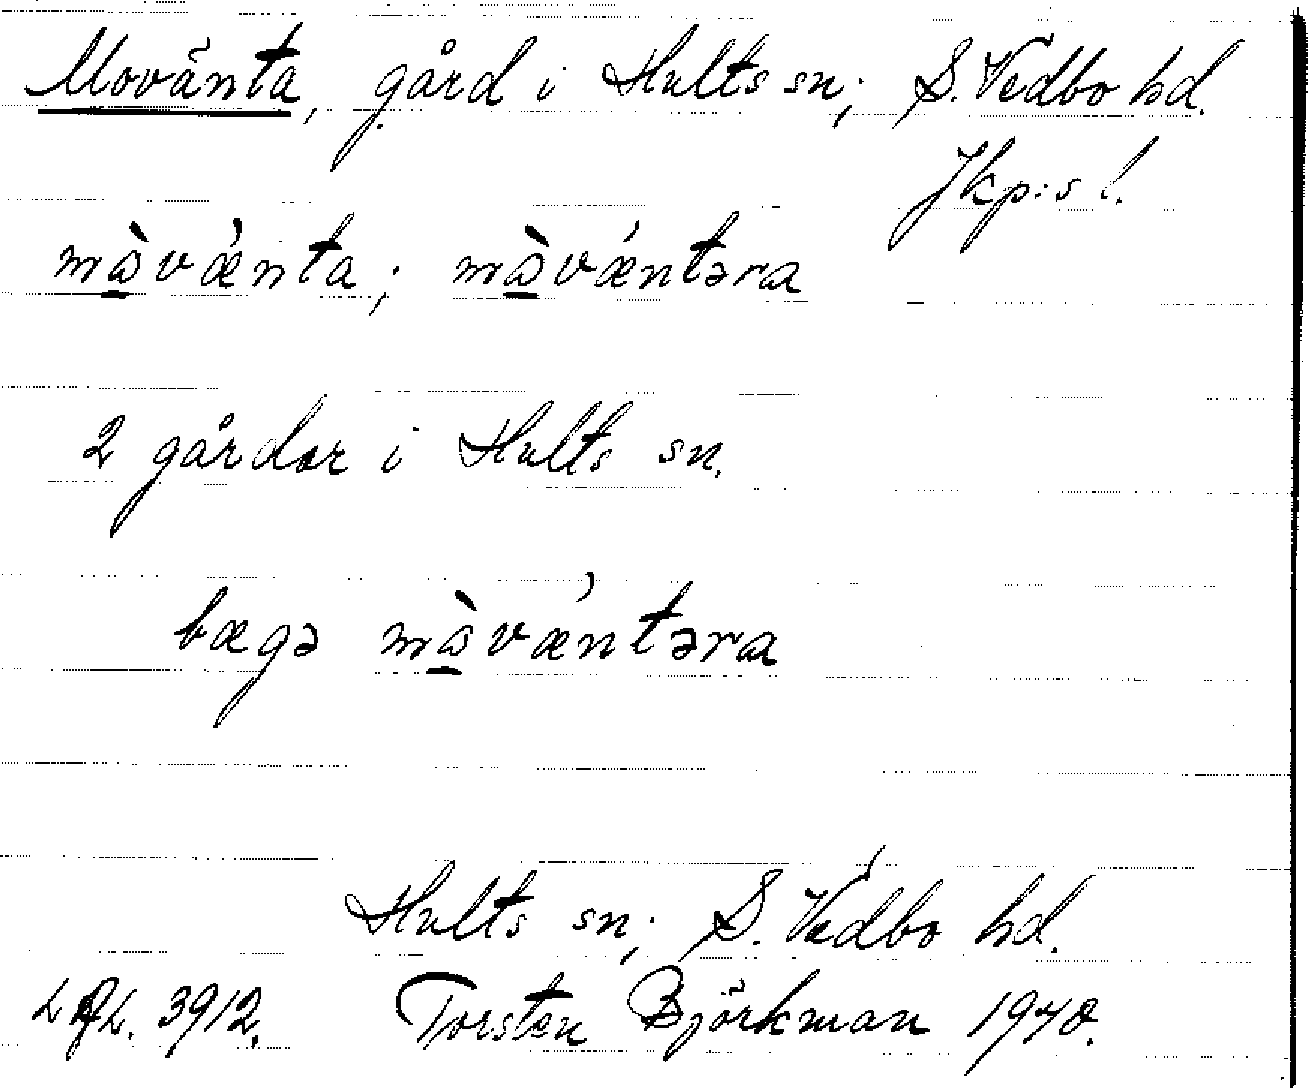 Movänta, gård i Hults sn; S. Vedbo hd.
Jkp:s l.
mɷ̀vǽnta; mɷ̀vǽntəra
2 gårdar i Hults sn.
bægə mɷ̀vǽntəra
Hults sn; S. Vedbo hd.
3912. Torsten Björkman 1940.